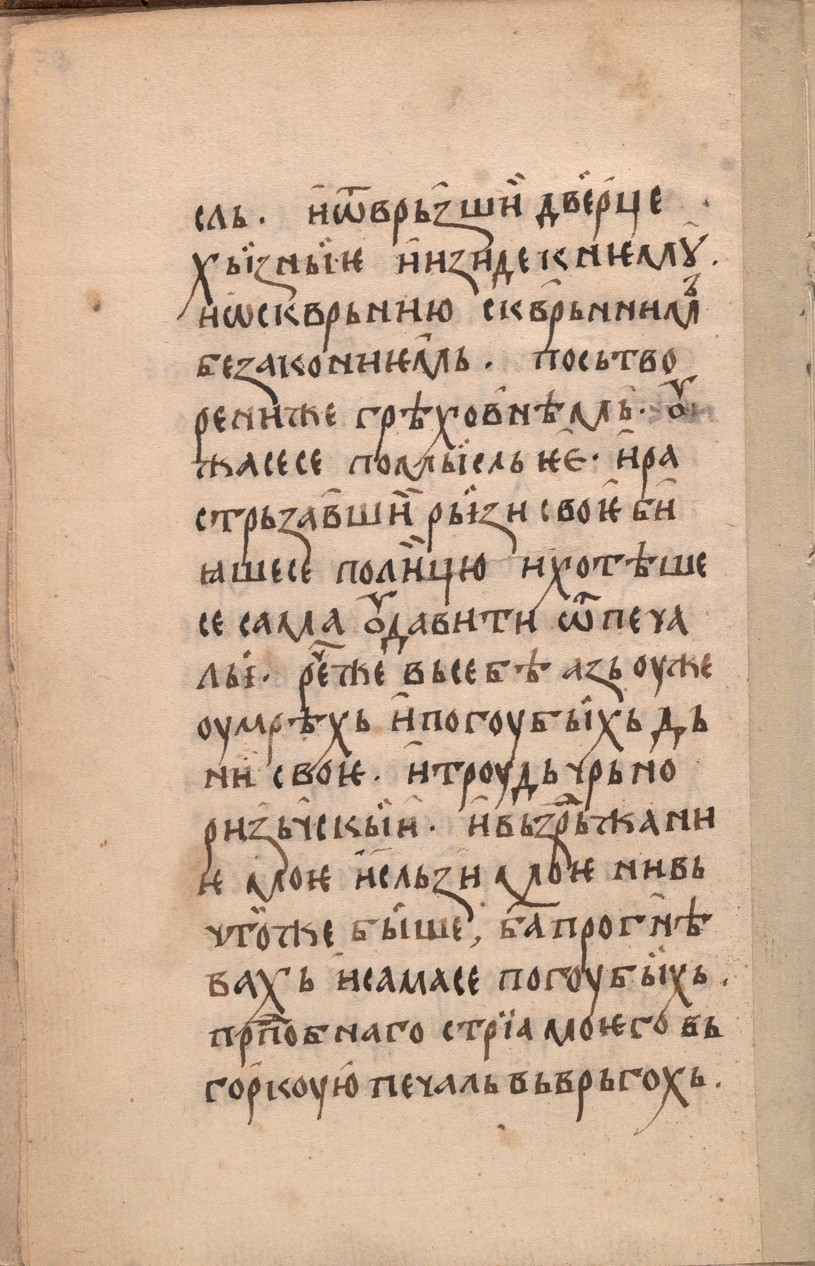 сль. и҆ѿврьзши дверце
хыꙁныѥ и҆ изиде к нѥмꙋ.
и҆ ѡсквр꙼ьни ю сквр꙼ьнниим
безаконнѥмь. по сьтво
рени же грѣховнѣмь. ꙋ
жасе се помысль ѥѥ. и ра
стрьзавши ризы своѥ би
ꙗше се по лицю и хотѣше
се сама ꙋдавити ѿ печа
лы. рече же вь себѣ азь оуже
оумрѣхь и погоубыхь дь
ни своѥ. и троудь чрьно
ризьчскыи. и вьздрьжани
ѥ моѥ и сльзи моѥ ни вь
чтоже быше, ба прогнѣ
вахь и сама се погоубыхь.
прпобнаго стрїа моѥго вь
горкоую печаль вьврьгохь.